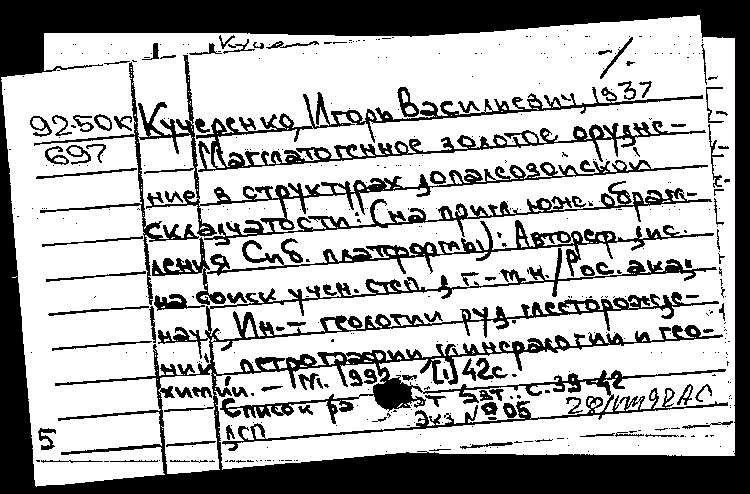 -/.
92-50к
697
Кучеренко, Игорь Васильевич, 1937
Магматогенное золотое орудне-
ние в структурах допалеозойской
складчатости: (на прим. юж. обрам-
ления Сиб. платформы): Автореф. дис.
на соиск. учен. степ. д. г.-м.н. / Рос. акад.
наук, Ин-т геологии руд. месторожде-
ний, петрографии, минералогии и гео-
химии. - М. 1992 - [1] 42с.
Список ра от авт.: с. 39-42
ДСП Экз № 05
5